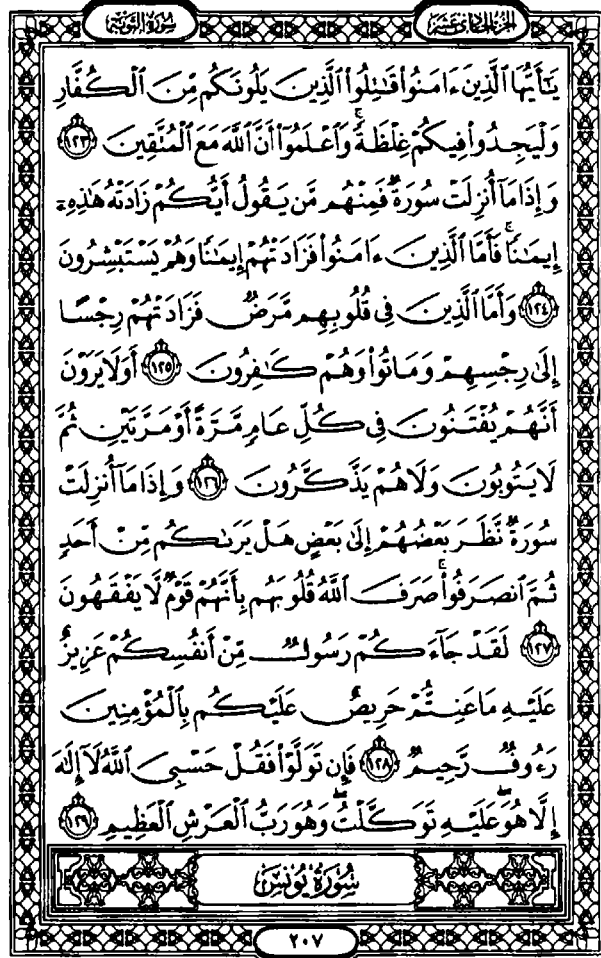 سُورَةُ التَّوْبَةِ
الجُزْءُ الحَادِي عَشَرَ
يَـٰٓأَيُّهَا ٱلَّذِينَ ءَامَنُوا۟ قَـٰتِلُوا۟ ٱلَّذِينَ يَلُونَكُم مِّنَ ٱلْكُفَّارِ
وَلْيَجِدُوا۟ فِيكُمْ غِلْظَةً ۚ وَٱعْلَمُوٓا۟ أَنَّ ٱللَّهَ مَعَ ٱلْمُتَّقِينَ ﴿١٢٣﴾
وَإِذَا مَآ أُنزِلَتْ سُورَةٌ فَمِنْهُم مَّن يَقُولُ أَيُّكُمْ زَادَتْهُ هَـٰذِهِۦٓ
إِيمَـٰنًا ۚ فَأَمَّا ٱلَّذِينَ ءَامَنُوا۟ فَزَادَتْهُمْ إِيمَـٰنًا وَهُمْ يَسْتَبْشِرُونَ
﴿١٢٤﴾ وَأَمَّا ٱلَّذِينَ فِى قُلُوبِهِم مَّرَضٌ فَزَادَتْهُمْ رِجْسًا
إِلَىٰ رِجْسِهِمْ وَمَاتُوا۟ وَهُمْ كَـٰفِرُونَ ﴿١٢٥﴾ أَوَلَا يَرَوْنَ
أَنَّهُمْ يُفْتَنُونَ فِى كُلِّ عَامٍ مَّرَّةً أَوْ مَرَّتَيْنِ ثُمَّ
لَا يَتُوبُونَ وَلَا هُمْ يَذَّكَّرُونَ ﴿١٢٦﴾ وَإِذَا مَآ أُنزِلَتْ
سُورَةٌ نَّظَرَ بَعْضُهُمْ إِلَىٰ بَعْضٍ هَلْ يَرَىٰكُم مِّنْ أَحَدٍ
ثُمَّ ٱنصَرَفُوا۟ ۚ صَرَفَ ٱللَّهُ قُلُوبَهُم بِأَنَّهُمْ قَوْمٌ لَّا يَفْقَهُونَ
﴿١٢٧﴾ لَقَدْ جَآءَكُمْ رَسُولٌ مِّنْ أَنفُسِكُمْ عَزِيزٌ
عَلَيْهِ مَا عَنِتُّمْ حَرِيصٌ عَلَيْكُم بِٱلْمُؤْمِنِينَ
رَءُوفٌ رَّحِيمٌ ﴿١٢٨﴾ فَإِن تَوَلَّوْا۟ فَقُلْ حَسْبِىَ ٱللَّهُ لَآ إِلَـٰهَ
إِلَّا هُوَ ۖ عَلَيْهِ تَوَكَّلْتُ ۖ وَهُوَ رَبُّ ٱلْعَرْشِ ٱلْعَظِيمِ ﴿١٢٩﴾
سُورَةُ يُونُسَ
٢٠٧